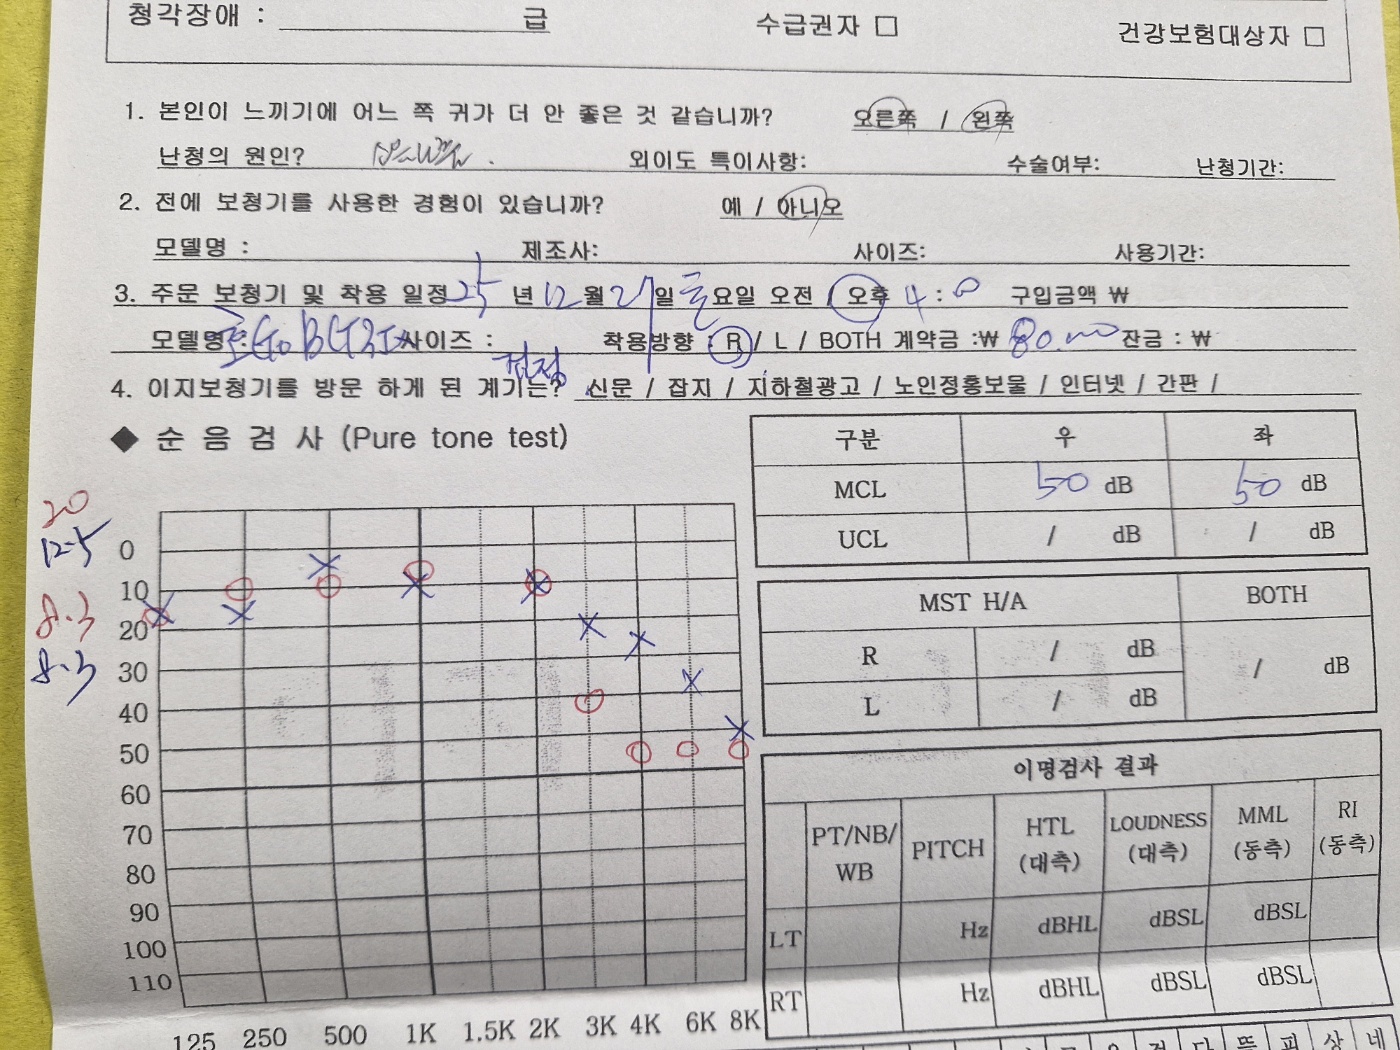 청각장애 : 급 수급권자 □ 건강보험대상자 □
1. 본인이 느끼기에 어느 쪽 귀가 더 안 좋은 것 같습니까? 오른쪽 / 왼쪽
난청의 원인? 외이도 특이사항: 수술여부: 난청기간:
2. 전에 보청기를 사용한 경험이 있습니까? 예 / 아니오
모델명 : 제조사: 사이즈: 사용기간:
3. 주문 보청기 및 착용 일정 25 년 12 월 27 일 토 요일 오전 / 오후 4 : 00 구입금액 ₩
모델명: 사이즈 : 착용방향 : R / L / BOTH 계약금 :₩ 80.000 잔금 : ₩
검정
4. 이지보청기를 방문 하게 된 계기는? 신문 / 잡지 / 지하철광고 / 노인정홍보물 / 인터넷 / 간판 /
◆ 순 음 검 사 (Pure tone test)
구분 우 좌
MCL 50 dB 50 dB
UCL / dB / dB
MST H/A BOTH
R / dB / dB
L / dB
20
12.5
8.3
8.3
0
10
20
30
40
50
60
70
80
90
100
110
125 250 500 1K 1.5K 2K 3K 4K 6K 8K
이명검사 결과
PT/NB/WB PITCH HTL (대측) LOUDNESS (대측) MML (동측) RI (동측)
LT Hz dBHL dBSL dBSL
RT Hz dBHL dBSL dBSL